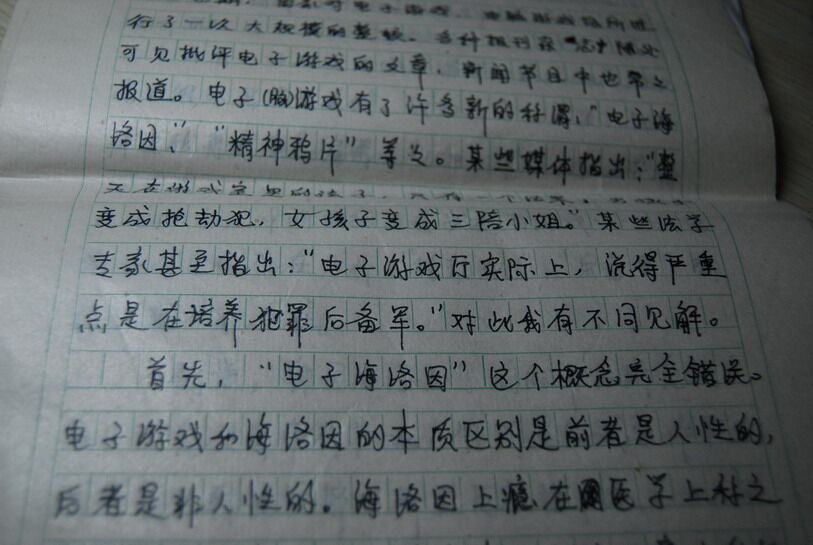 行了一次大规模的整顿。各种报刊杂志随处
可见批评电子游戏的文章，新闻节目中也常
报道。电子(脑)游戏有了许多新的称谓、"电子海
洛因"、"精神鸦片"等等。某些媒体指出："整
天在游戏室里的孩子，只有一个结果：
变成抢劫犯，女孩子变成三陪小姐。"某些法学
专家甚至指出："电子游戏厅实际上，说得严重
点是在培养犯罪后备军。"对此我有不同见解。
首先，"电子海洛因"这个概念完全错误。
电子游戏和海洛因的本质区别是前者是人性的，
后者是非人性的。海洛因上瘾在医学上称之